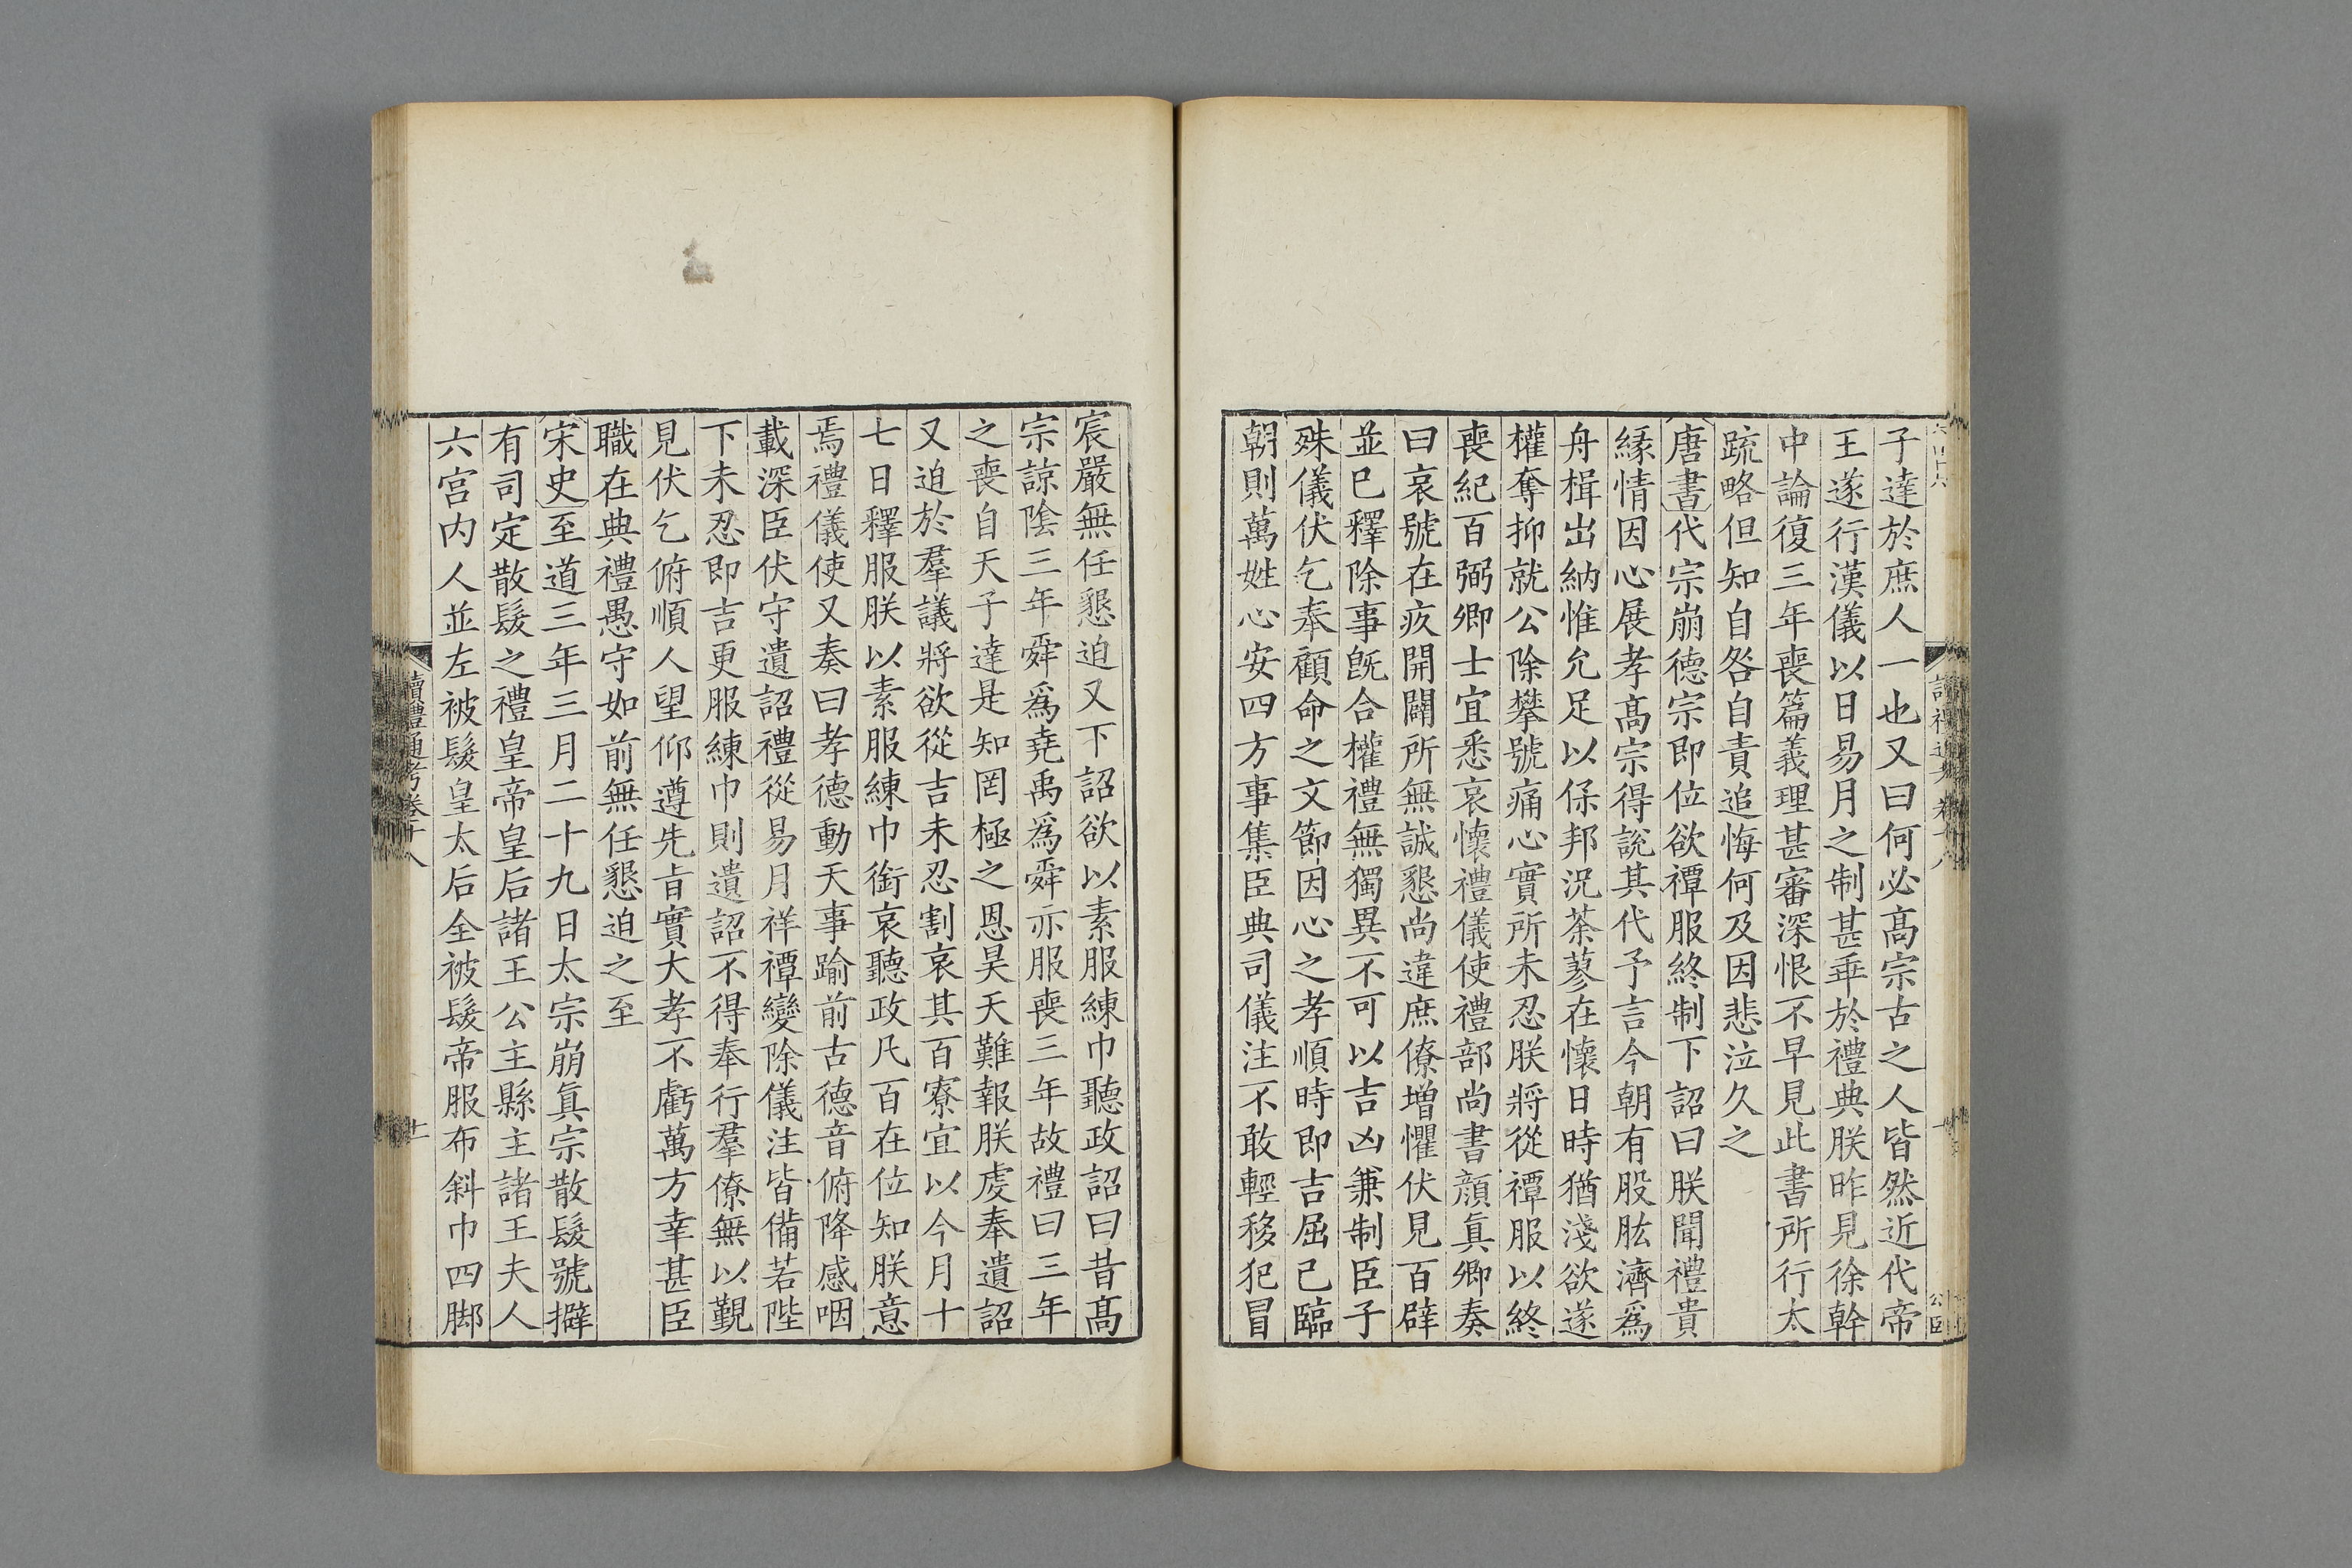 子達於庶人一也又曰何必髙宗古之人皆然近代帝
王遂行漢儀以日易月之制甚乖於禮典朕昨見徐幹
中論復三年喪篇義理甚審深恨不早見此書所行太
疏略但知自咎自責追悔何及因悲泣久之
唐書代宗崩德宗即位欲禫服終制下詔曰朕聞禮貴
緣情因心展孝髙宗得說其代予言今朝有股肱濟爲
舟楫出納惟允足以保邦況荼蓼在懷日時猶淺欲遂
權奪抑就公除攀號痛心實所未忍朕將從禫服以終
喪紀百弼卿士宜悉哀懷禮儀使禮部尚書顔眞卿奏
曰哀號在疚開闢所無誠懇尚違庶僚增懼伏見百辟
並已釋除事旣合權禮無獨異不可以吉凶兼制臣子
殊儀伏乞奉顧命之文節因心之孝順時即吉屈己臨
朝則萬姓心安四方事集臣典司儀注不敢輕移犯冒
宸嚴無任懇迫又下詔欲以素服練巾聽政詔曰昔髙
宗諒陰三年舜爲堯禹爲舜亦服喪三年故禮曰三年
之喪自天子達是知罔極之恩昊天難報朕虔奉遺詔
又迫於羣議將欲從吉未忍割哀其百寮宜以今月十
七日釋服朕以素服練巾銜哀聽政凡百在位知朕意
焉禮儀使又奏曰孝德動天事踰前古德音俯降感咽
載深臣伏守遺詔禮從易月祥禫變除儀注皆備若陛
下未忍即吉更服練巾則遺詔不得奉行羣僚無以覲
見伏乞俯順人望仰遵先旨實大孝不虧萬方幸甚臣
職在典禮愚守如前無任懇迫之至
宋史至道三年三月二十九日太宗崩眞宗散髮號擗
有司定散髮之禮皇帝皇后諸王公主縣主諸王夫人
六宮内人並左被髮皇太后全被髮帝服布斜巾四脚
讀禮通考卷十八